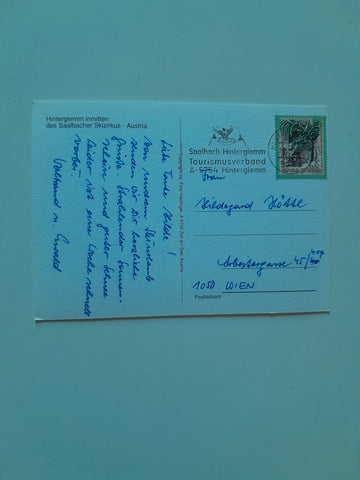 Hinterglemm inmitten
des Saalbacher Skizirkus - Austria
Liebe Tante Hilde!
Von unserem Skiurlaub
senden wir Dir herzliche
Grüße. Strahlender Sonnen-
schein und guter Schnee.
Leider ist eine Woche schnell
vorbei.
Saalbach Hinterglemm
Tourismusverband
A-5754 Hinterglemm
Frau
Hildegard
Arbeitergasse 45/
1050 WIEN
Postleitzahl